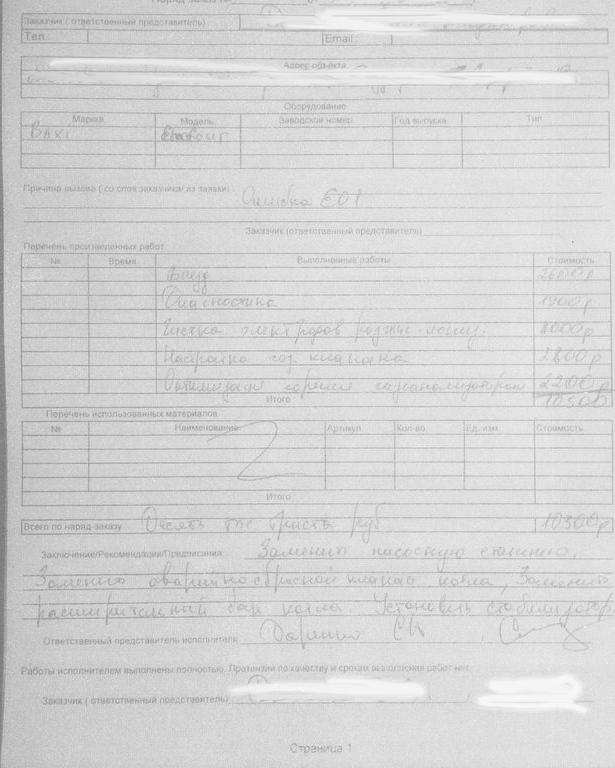 Наряд-заказ №
Заказчик ( ответственный представитель)
Тел. Email:
Адрес объекта
Оборудование
Марка Модель Заводской номер Год выпуска Тип
BAXI
Причина вызова ( со слов заказчика/ из заявки) Ошибка E01
Заказчик (ответственный представитель)
Перечень произведенных работ
№ Время Выполненные работы Стоимость
Выезд 2600р
Диагностика 1900р
Чистка электродов розжиг.
Настройка газ. клапана 2800р
Оптимизация горения газоанализатором 2200р
Итого
Перечень использованных материалов
№ Наименование Артикул. Кол-во. Ед. изм. Стоимость
Итого
Всего по наряд-заказу Десять тыс триста руб 10300р
Заключение/Рекомендации/Предписания: Заменить насосную станцию,
Заменить аварийно сбросной клапан котла, Заменить
расширительный бак котла. Установить стабилизатор
Ответственный представитель исполнителя
Работы исполнителем выполнены полностью. Претензий по качеству и срокам выполнения работ нет.
Заказчик ( ответственный представитель)
Страница 1